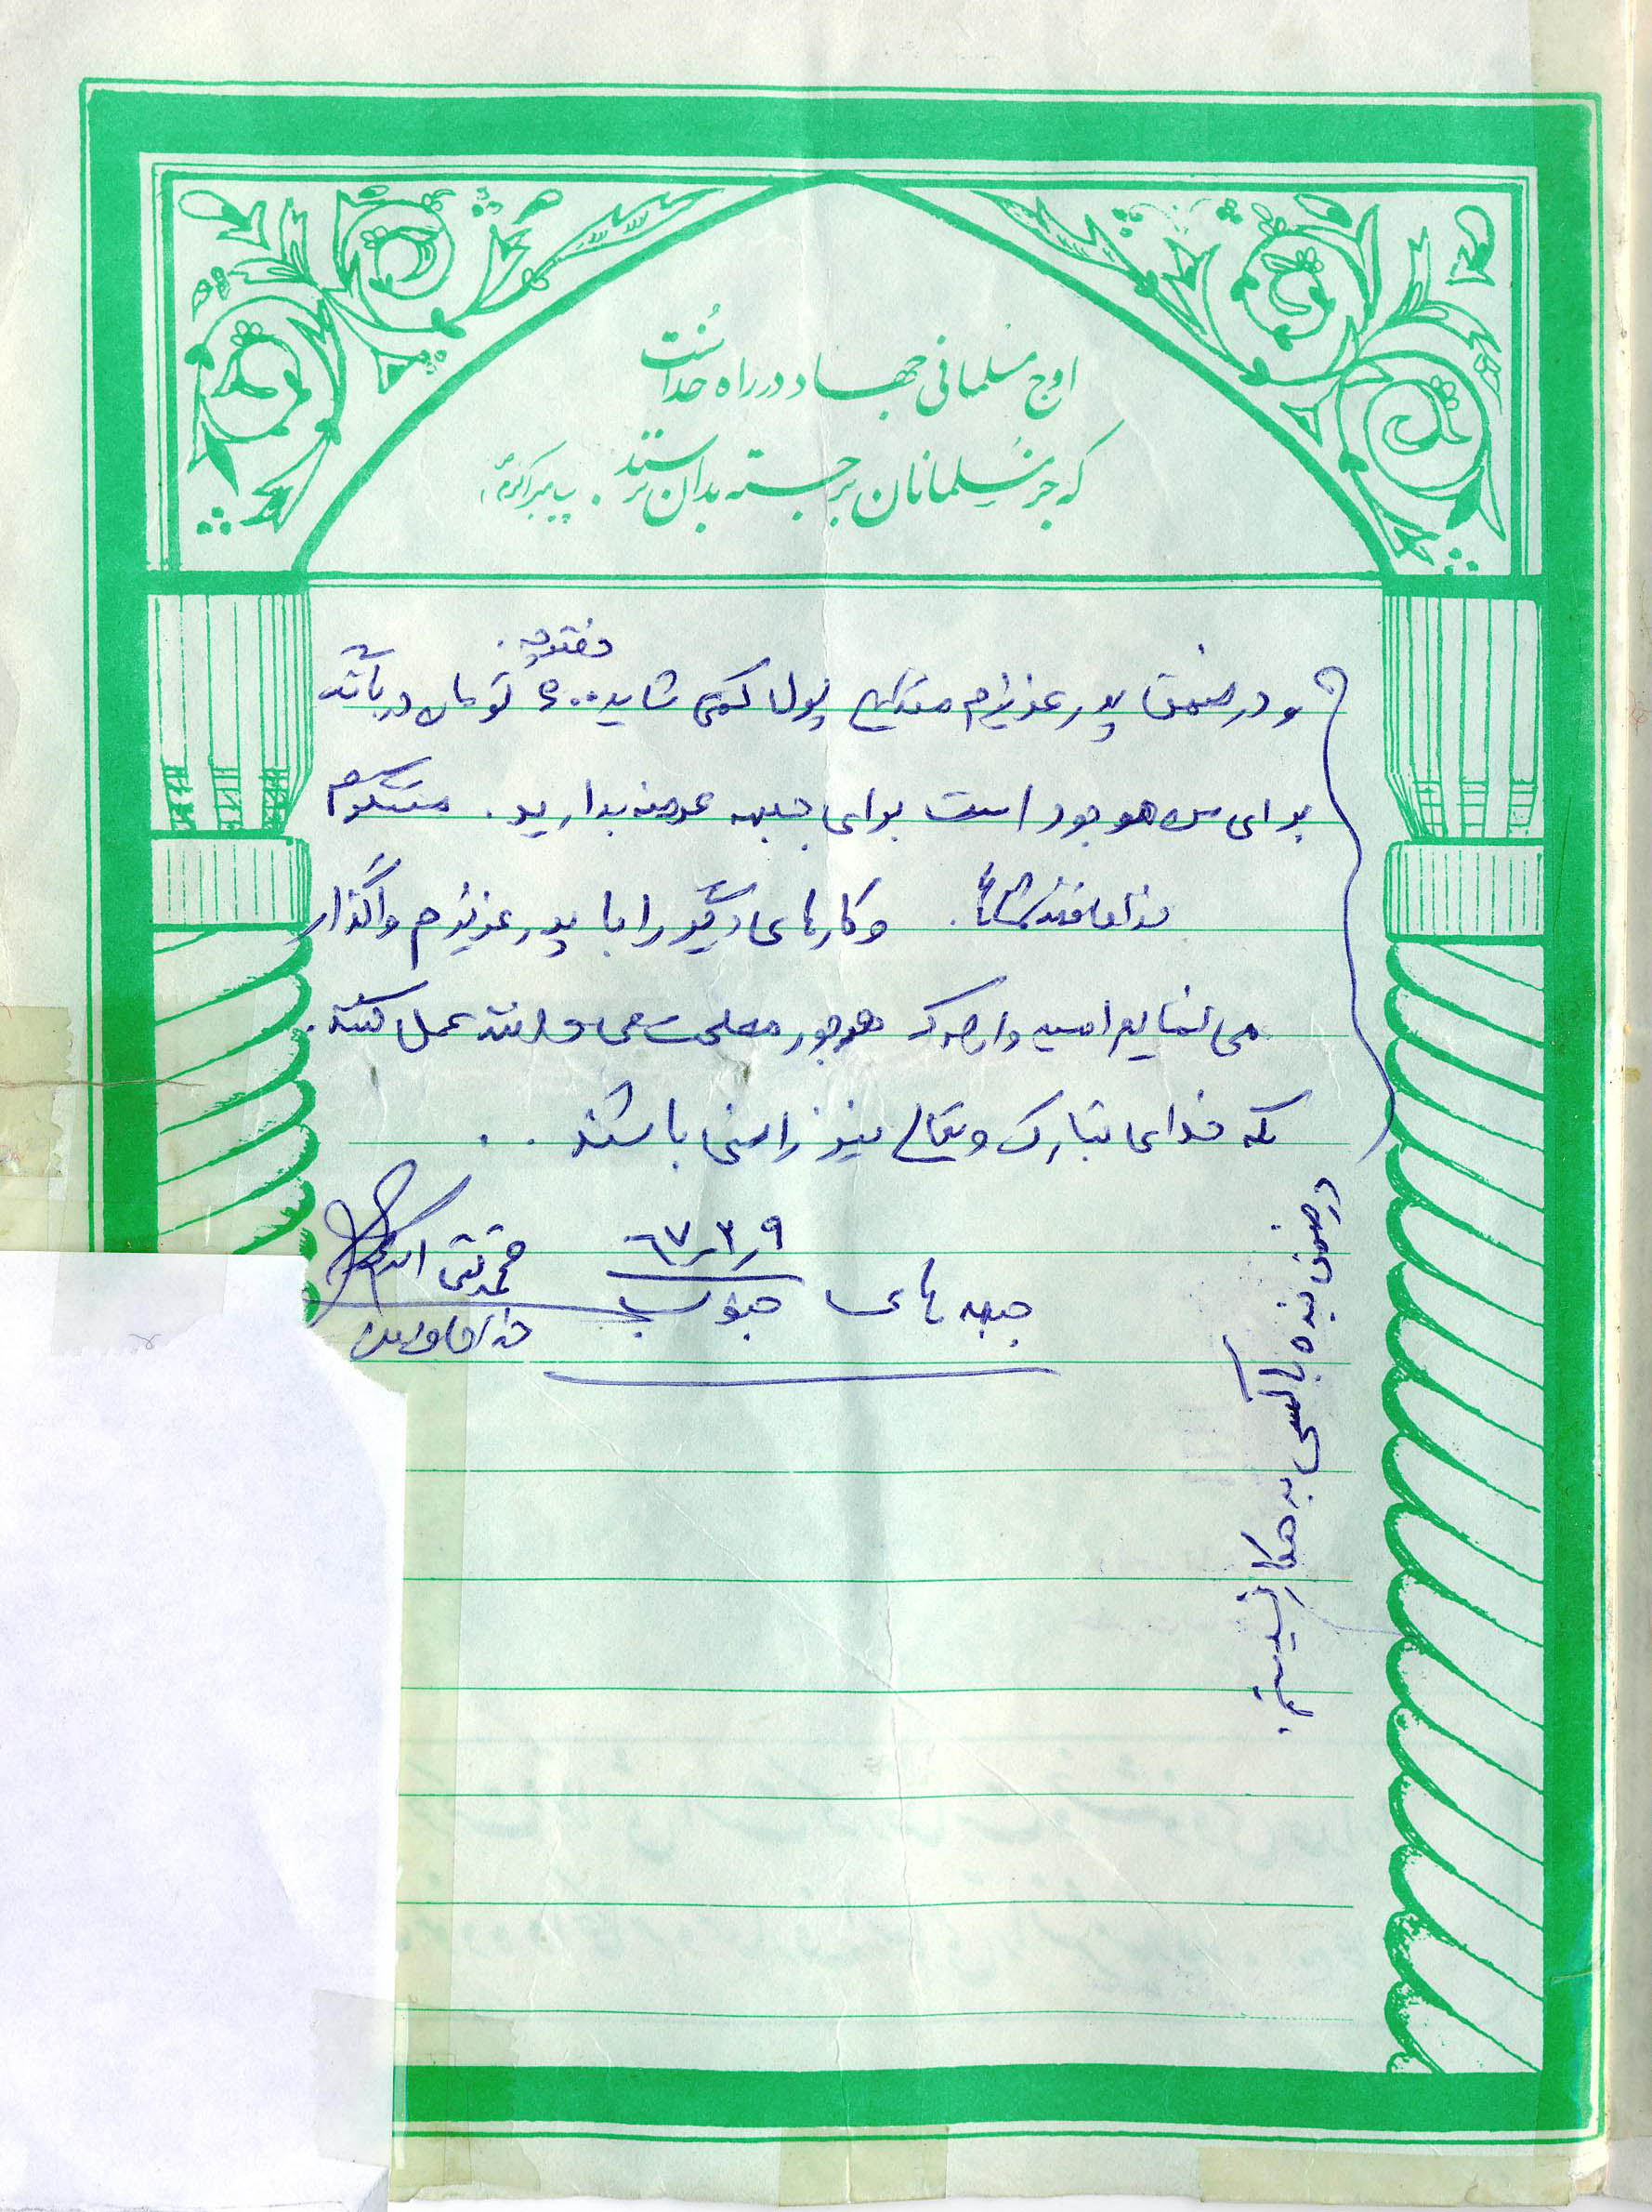 اوج مسلمانی جهاد در راه خداست
که جز مسلمانان برجسته بدان نرسند. پیامبر اکرم
و در ضمن پدر عزیزم مقداری پول کمی شاید ۵۰۰ تومان در بانک
برای من موجود است برای جبهه عرضه بدارید. متشکرم
خدا حافظ شما. و کارهای دیگر را با پدر عزیزم واگذار
می نمایم امیدوارم که هرجور مصلحت می دانند عمل کنند.
که خدای تبارک و تعالی نیز راضی باشند..
۶۷٫۳٫۹ محمد تقی
جبهه های جنوب
در ضمن بنده با کسی بدهکار نیستم.